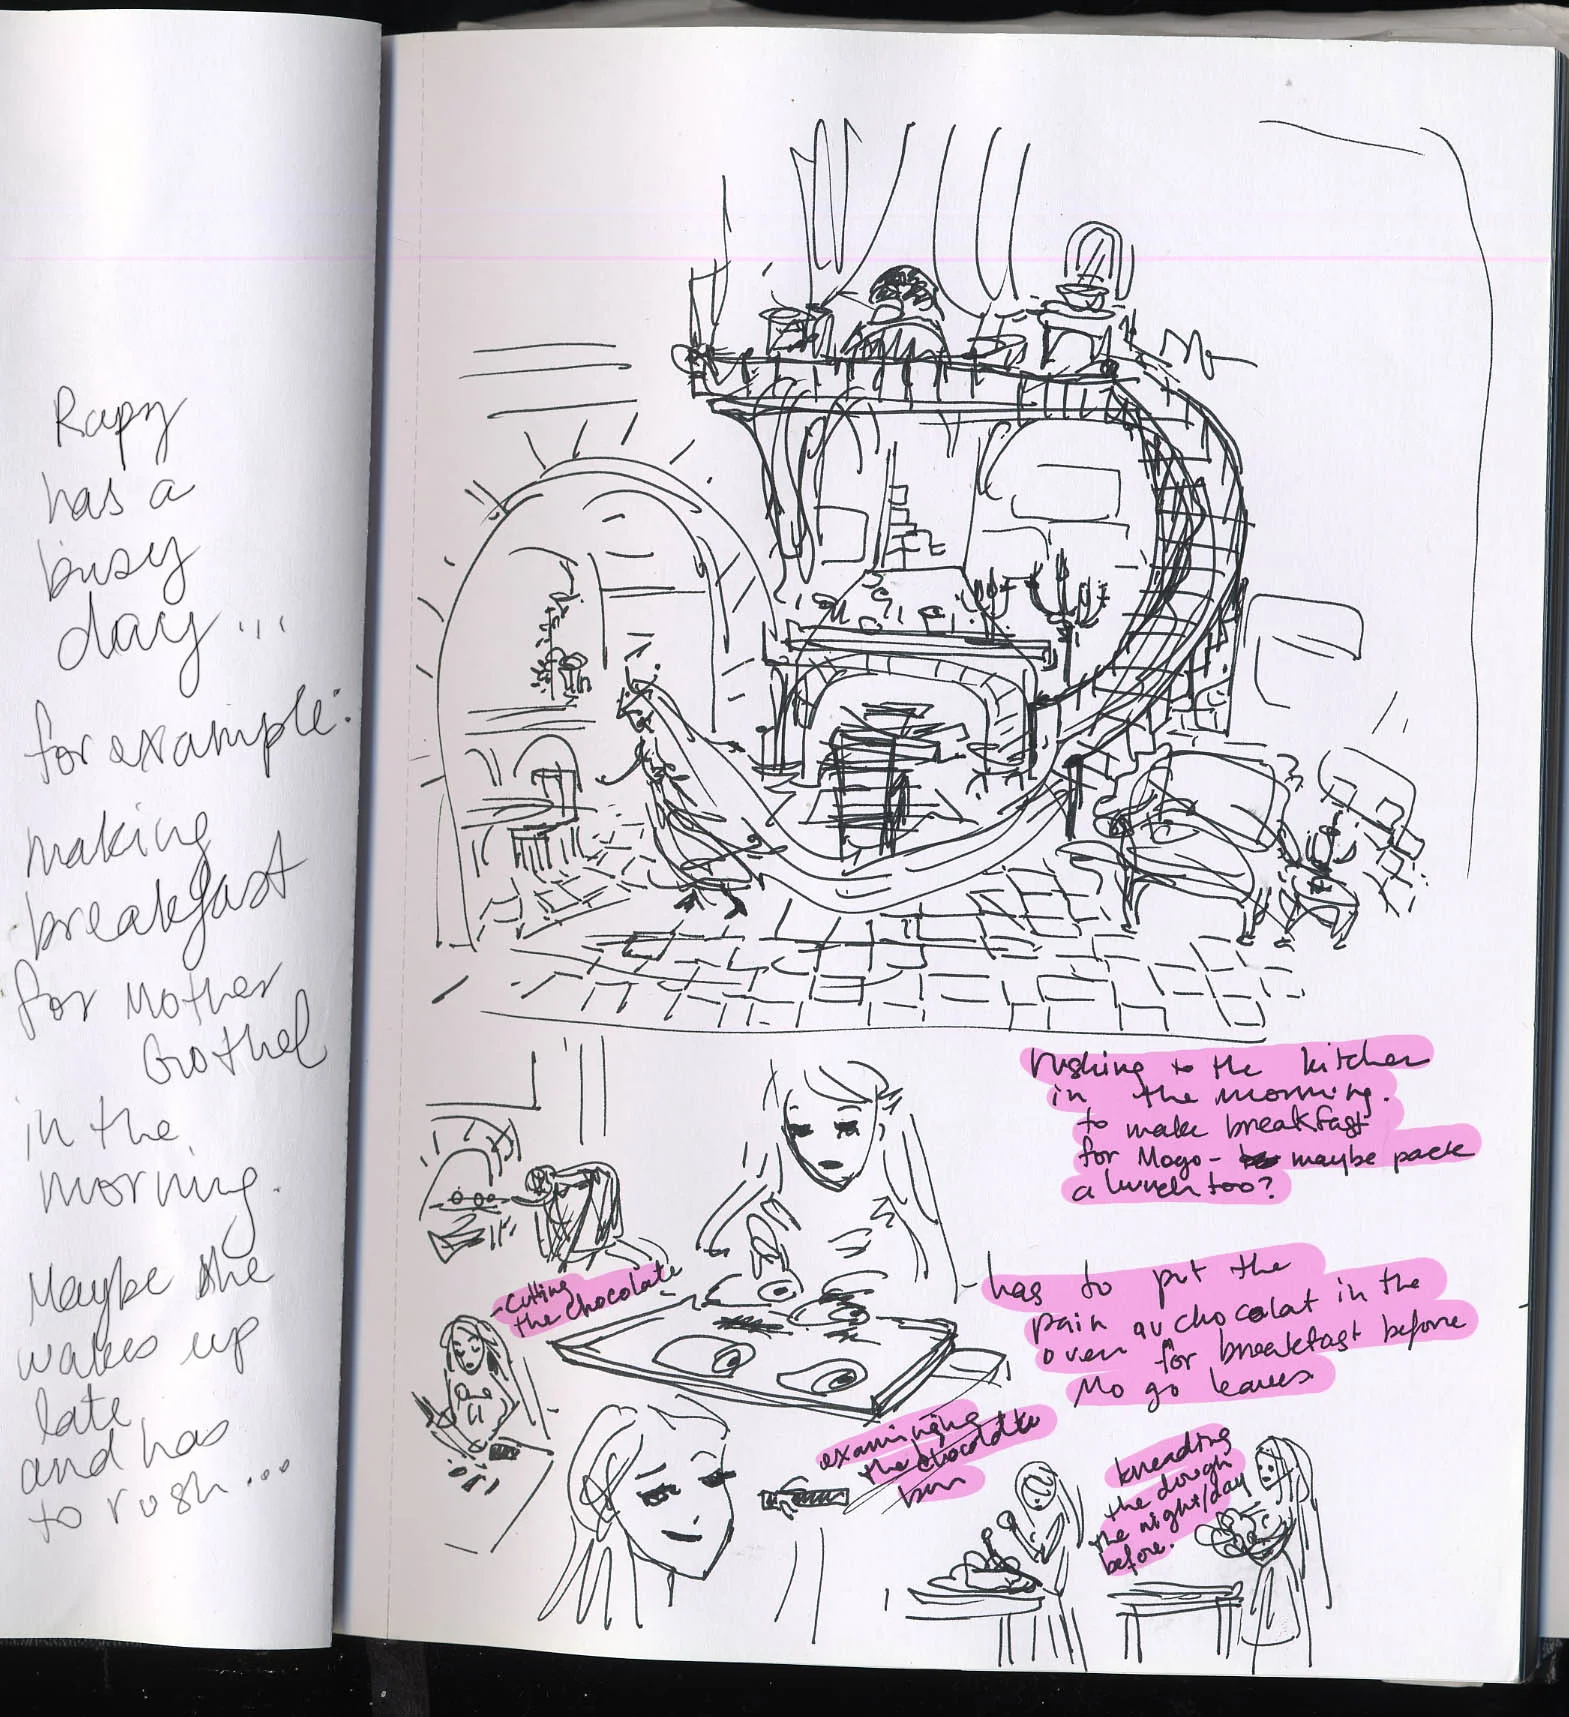 Rapy
has a
busy
day...
for example:
making
breakfast
for Mother
Gothel
in the
morning.
Maybe she
wakes up
late
and has
to rush...
rushing to the kitchen
in the morning.
to make breakfast
for Mogo - maybe pack
a lunch too?
- cutting
the chocolate
- has to put the
pain au chocolat in the
oven for breakfast before
Mo go leaves.
examinging
the chocolate
bun
kneading
the dough
the night/day
before.